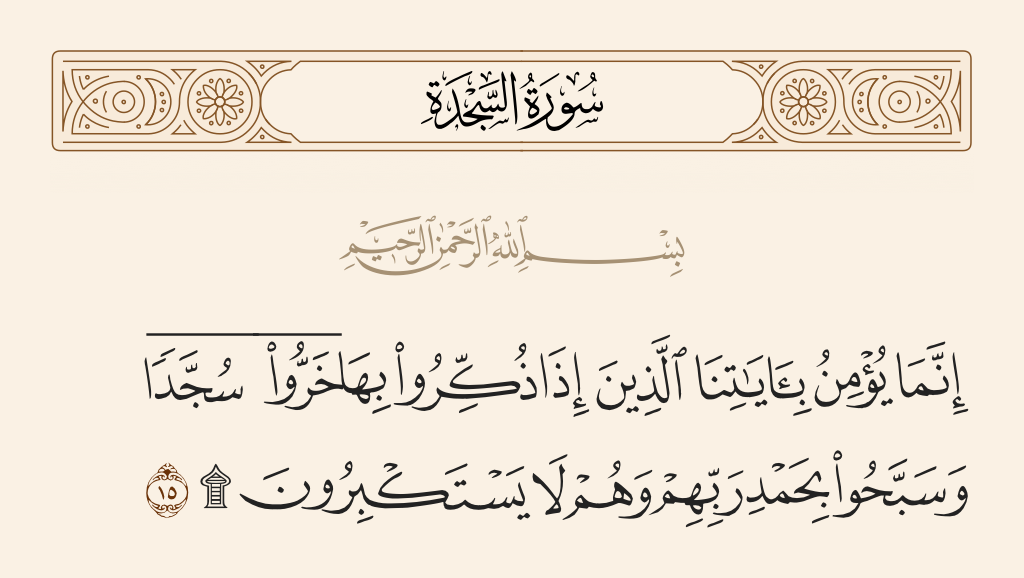 سُورَةُ السَّجْدَةِ
بِسْمِ ٱللَّهِ ٱلرَّحْمَٰنِ ٱلرَّحِيمِ
إِنَّمَا يُؤْمِنُ بِـَٔايَـٰتِنَا ٱلَّذِينَ إِذَا ذُكِّرُوا۟ بِهَا خَرُّوا۟ سُجَّدًا
وَسَبَّحُوا۟ بِحَمْدِ رَبِّهِمْ وَهُمْ لَا يَسْتَكْبِرُونَ ۩ ١٥